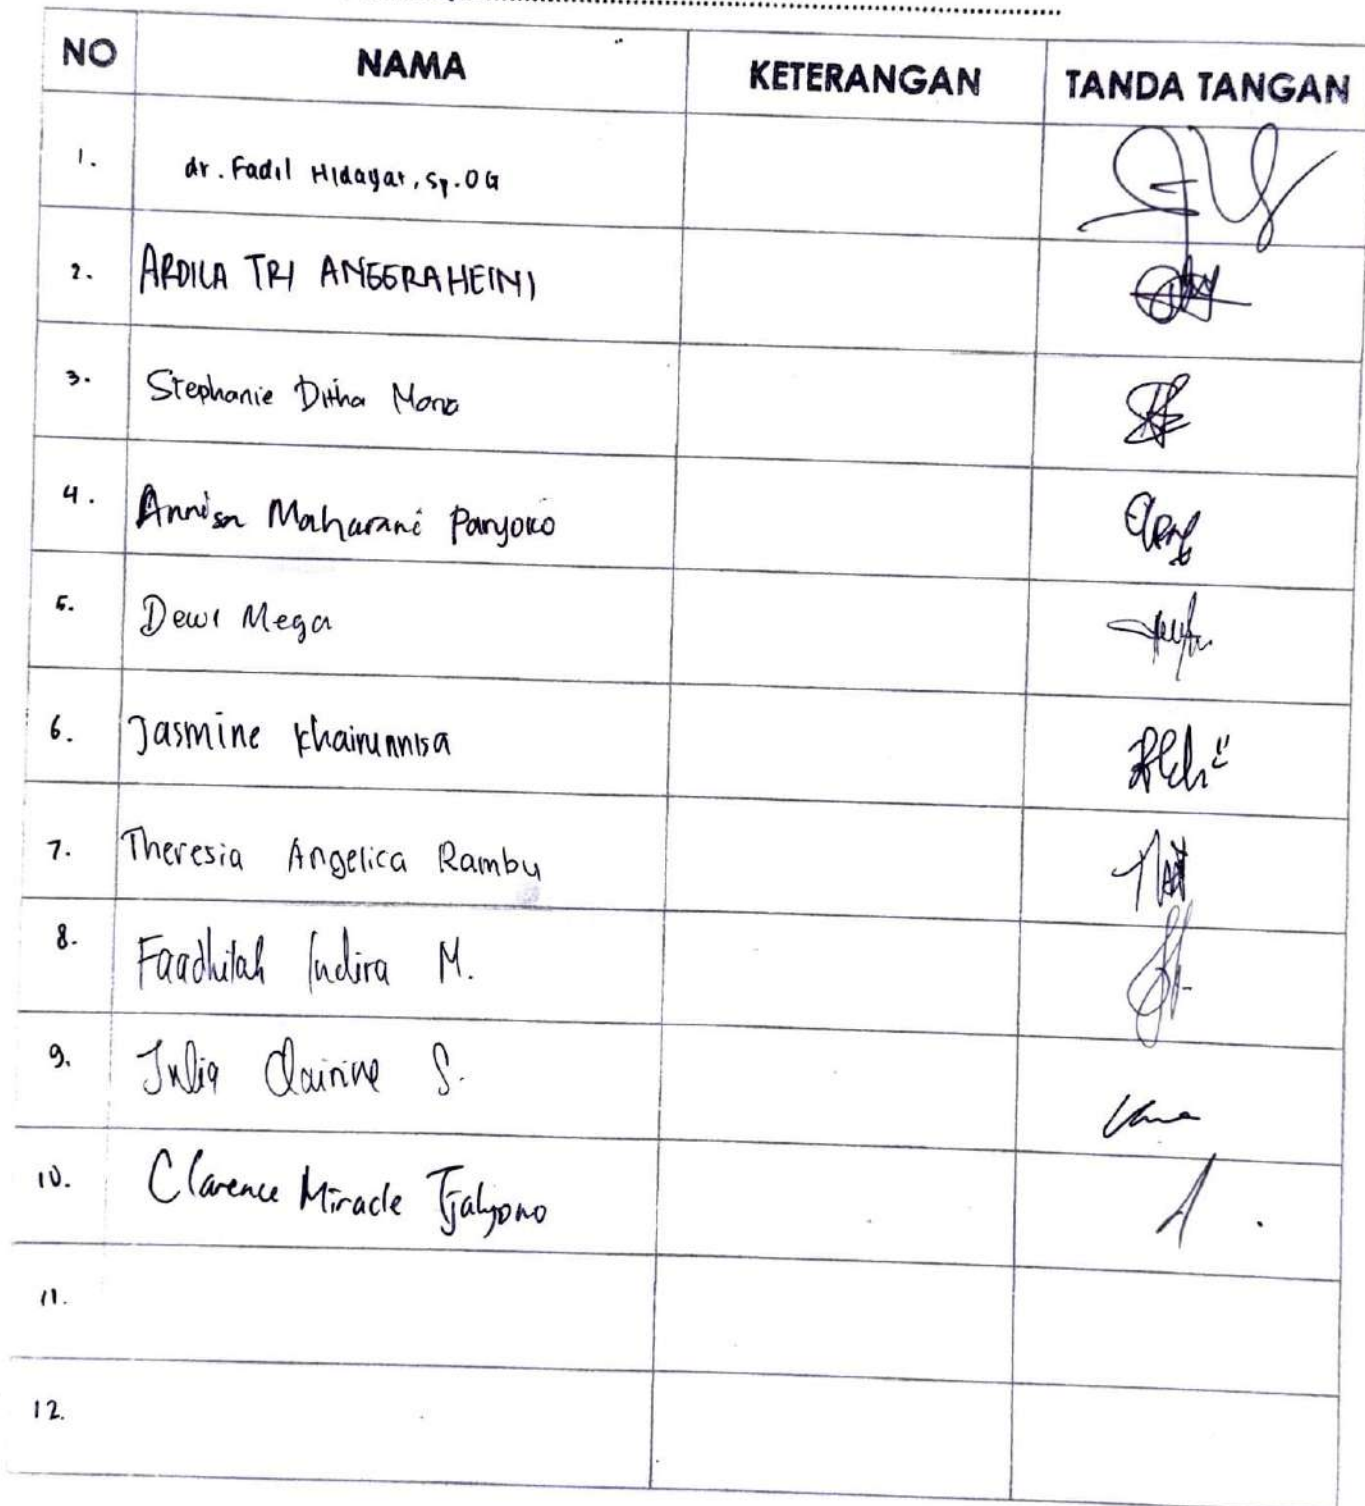 NO NAMA KETERANGAN TANDA TANGAN
1. dr. Fadil Hidayat, Sp.OG
2. ARDILA TRI ANGGRAHEINI
3. Stephanie Ditha Mona
4. Annisa Maharani Panjoko
5. Dewi Mega
6. Jasmine Khairunnisa
7. Theresia Angelica Rambu
8. Faadhilah Indira M.
9. Julia Clairine S.
10. Clarence Miracle Tjahyono
11.
12.